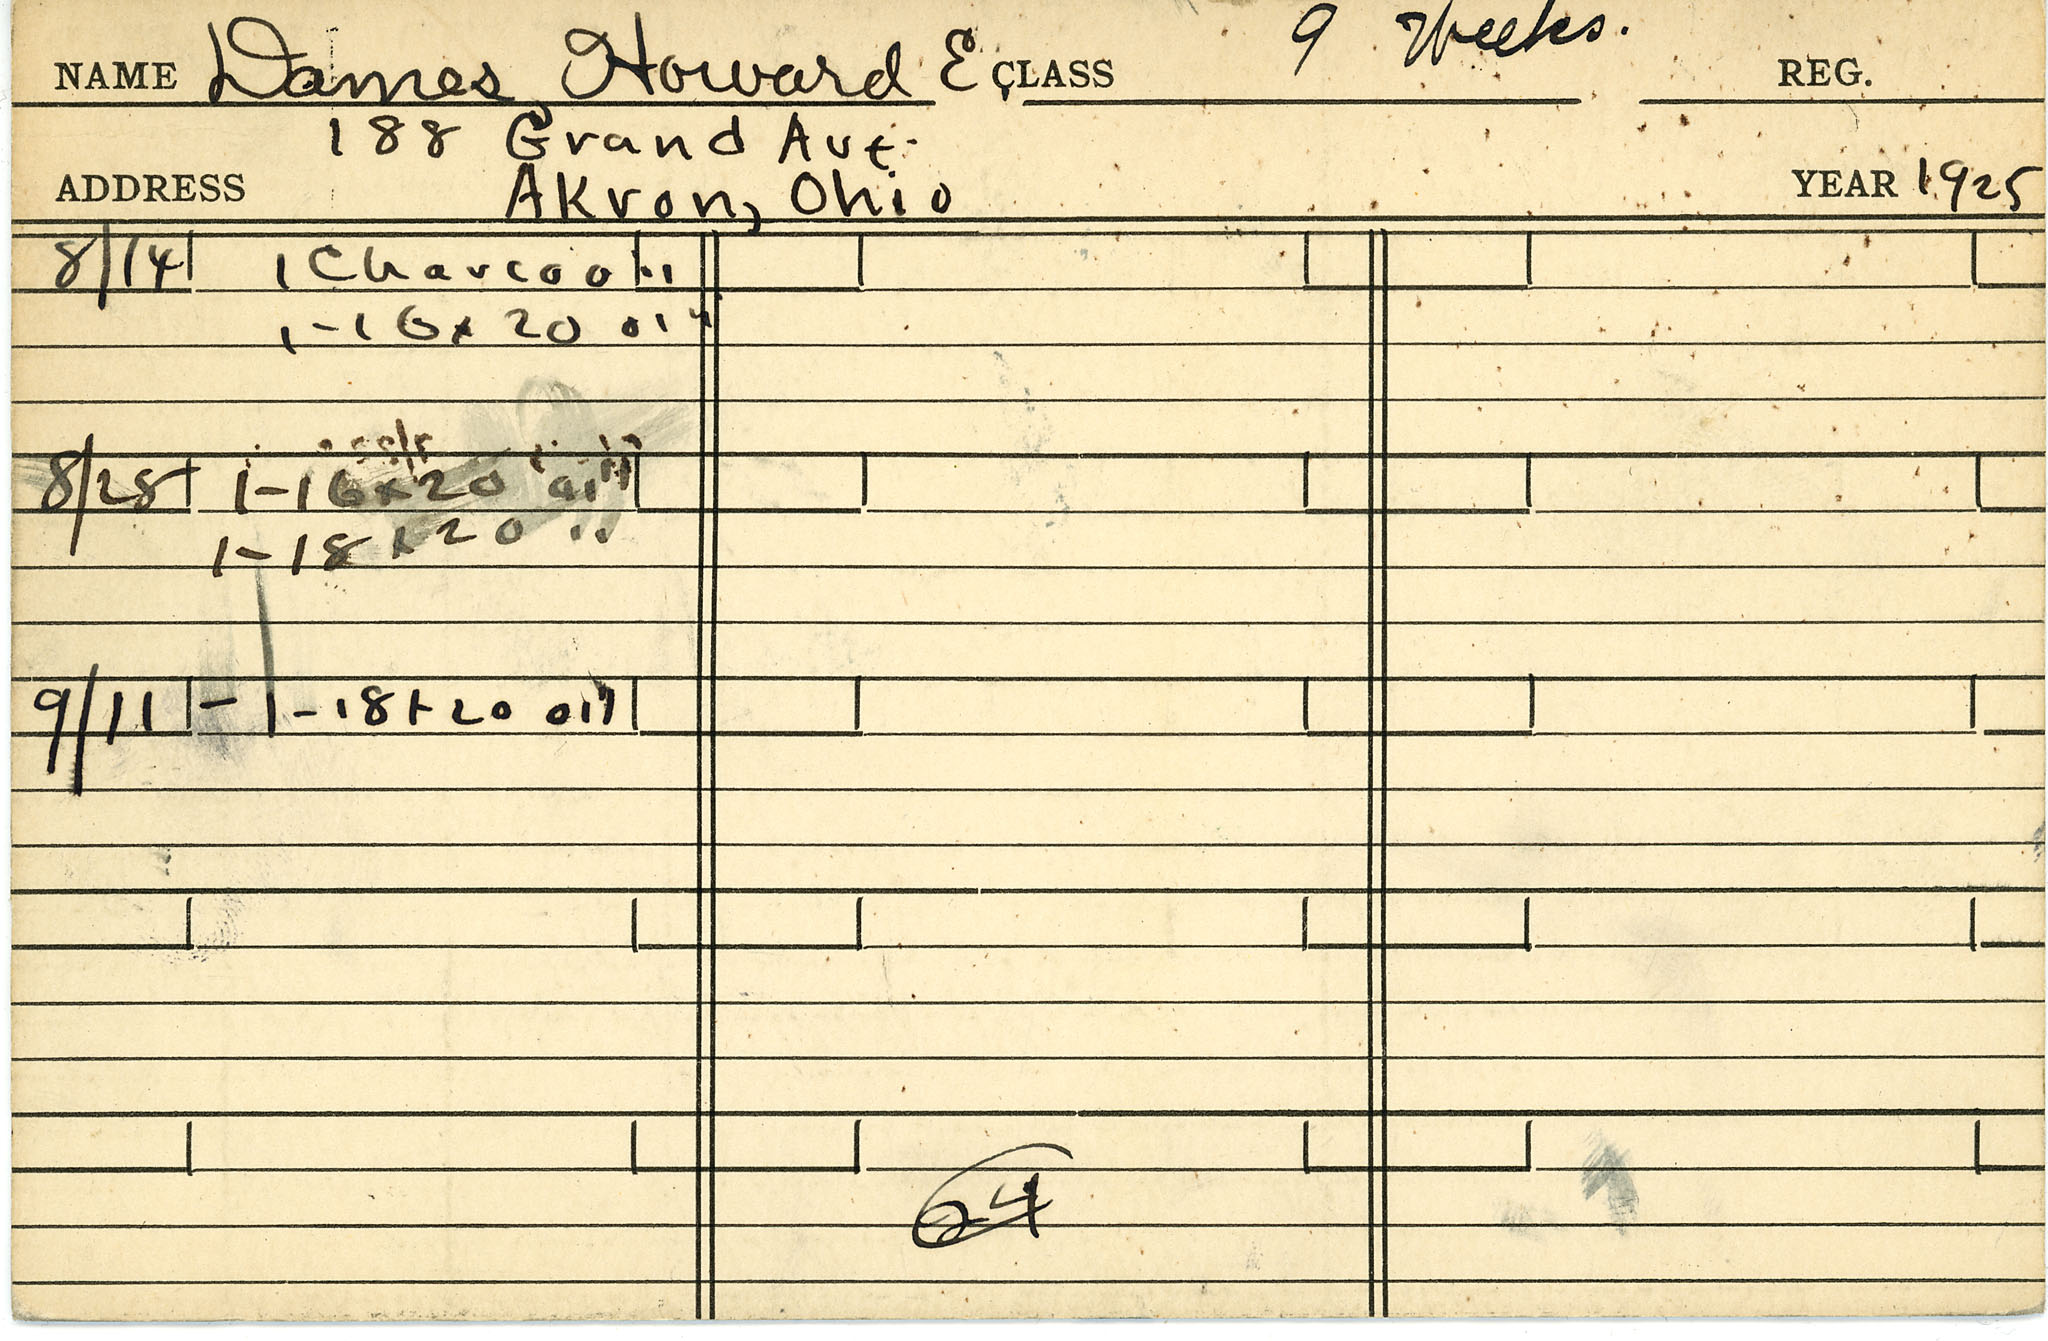 9 Weeks.
NAME Dames, Howard E CLASS REG.
188 Grand Ave.
ADDRESS Akron, Ohio YEAR 1925
8/14 1 Charcoal
1-16x20 oil
8/28 1-16x20 oil
1-18x20 "
9/11 - 1-18x20 oil
24